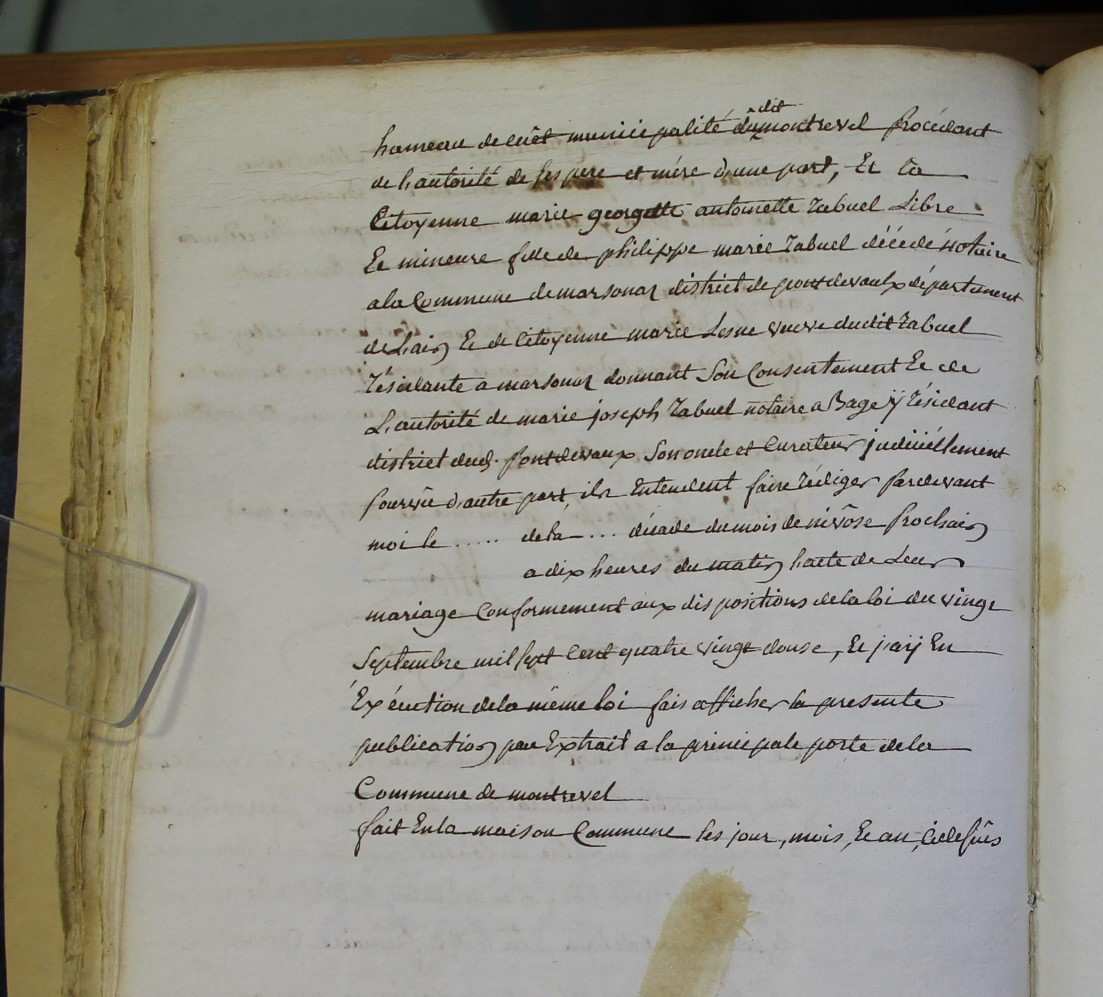 hameau de cuet municipalité dudit montrevel procédant
de l'autorité de ses pere et mére d'une part, Et la
Citoyenne marie georgette antoinette Zabuel Libre
Et mineure fille de philippe marie Zabuel décédé notaire
a la Commune de marsonaz district de pontdevaux département
de L'ain Et de Citoyenne marie Lesne veuve dudit Zabuel
Résidante a marsonaz donnant Son Consentement Et de
L'autorité de marie joseph Zabuel notaire a Bagé ÿ Résidant
district dud. pontdevaux Son oncle et Curateur judiciéllement
pourvû d'autre part, ils Entendent faire Rédiger pardevant
moi le ..... de la .... décade du mois de nivôse prochain
a dix heures du matin l'acte de Leur
mariage Conformement aux dispositions de la loi du vingt
Septembre mil sept Cent quatre vingt douse, Et j'aÿ En
Exécution de la même loi fais afficher la presente
publication par Extrait a la principale porte de la
Commune de montrevel
fait En la maison Commune les jour, mois, Et an, Cidessûs